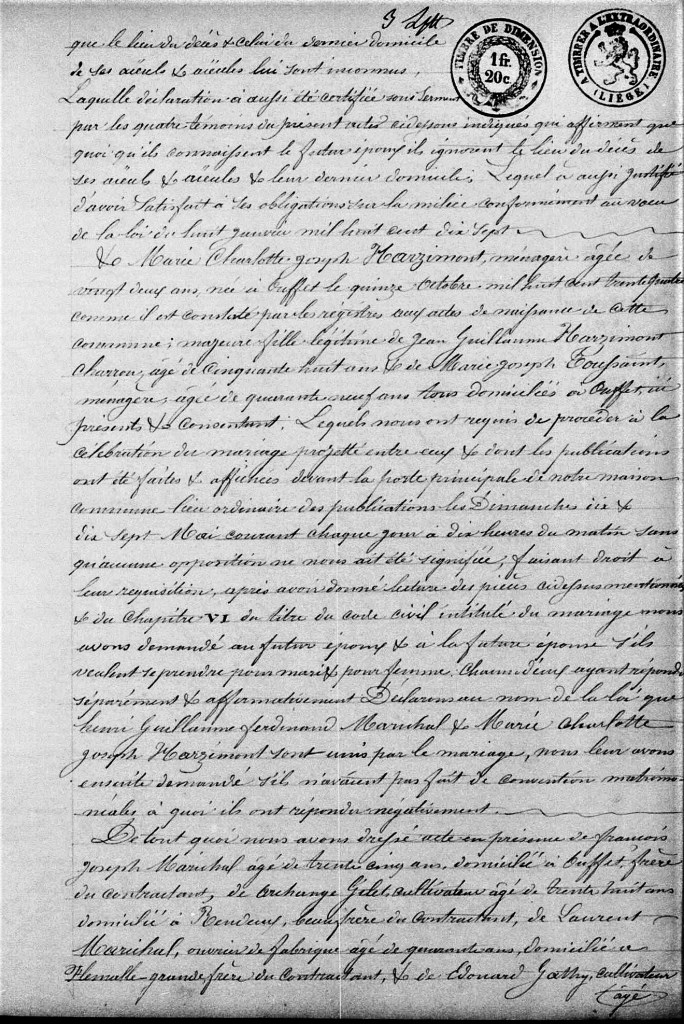 3
TIMBRE DE DIMENSION
1 fr.
20 c.
A TIMBRER A L'EXTRAORDINAIRE
(LIÉGE)
que le lieu du décès & celui du dernier domicile
de ses aïeuls & aïeules lui sont inconnus,
Laquelle déclaration à aussi été certifiée sous serment
par les quatre temoins du présent actes cidessous indiqués qui affirment que
quoi qu'ils connaissent le futur époux ils ignorent le lieu du décès de
ses aïeuls & aïeules & leur dernier domicile; Lequel à aussi justifié
d'avoir satisfait à ses obligations sur la milice conformément au vœu
de la loi du huit janvier mil huit cent dix sept
& Marie Charlotte joseph Harzimont, ménagère âgée de
vingt deux ans, née à Ouffet le quinze Octobre mil huit cent trente quatre
comme il est constaté par les régistres aux actes de naissance de cette
commune; majeure fille légitime de Jean Guillaume Harzimont
Charron, âgé de Cinquante huit ans & de Marie joseph Toussaint,
ménagère, âgée de quarante neuf ans tous domiciliés à Ouffet, ici
présents & consentant. Lequels nous ont requis de procéder à la
célébration du mariage projetté entre eux & dont les publications
ont été faites & affichées devant la porte principale de notre maison
commune lieu ordinaire des publications les Dimanches dix &
dix sept Mai courant chaque jour à dix heures du matin sans
qu'aucune opposition ne nous ait été signifiée; faisant droit à
leur requisition, après avoir donné lecture des pièces cidessus mentionnées
& du chapitre VI du titre du code civil intitulé du mariage nous
avons demandé au futur époux & à la future épouse s'ils
veulent se prendre pour mari & pour femme. Chacun d'eux ayant répondu
séparément & affirmativement Déclarons au nom de la loi que
henri Guillaume ferdinand Maréchal & Marie Charlotte
joseph Harzimont sont unis par le mariage, nous leur avons
ensuite demandé s'ils n'avaient pas fait de convention matrimo-
niales à quoi ils ont répondu négativement.
De tout quoi nous avons dressé acte en présence de françois
joseph Maréchal âgé de trente cinq ans, domicilié à Ouffet, frère
du contractant, de Archange Gilet, cultivateur âgé de trente huit ans
domicilié à Rendeux, beau frère du Contractant, de Laurent
Maréchal, ouvrier de fabrique âgé de quarante ans, domicilié à
Flemalle-grande, frère du Contractant, & de Edouard Gathy, cultivateur
âgé